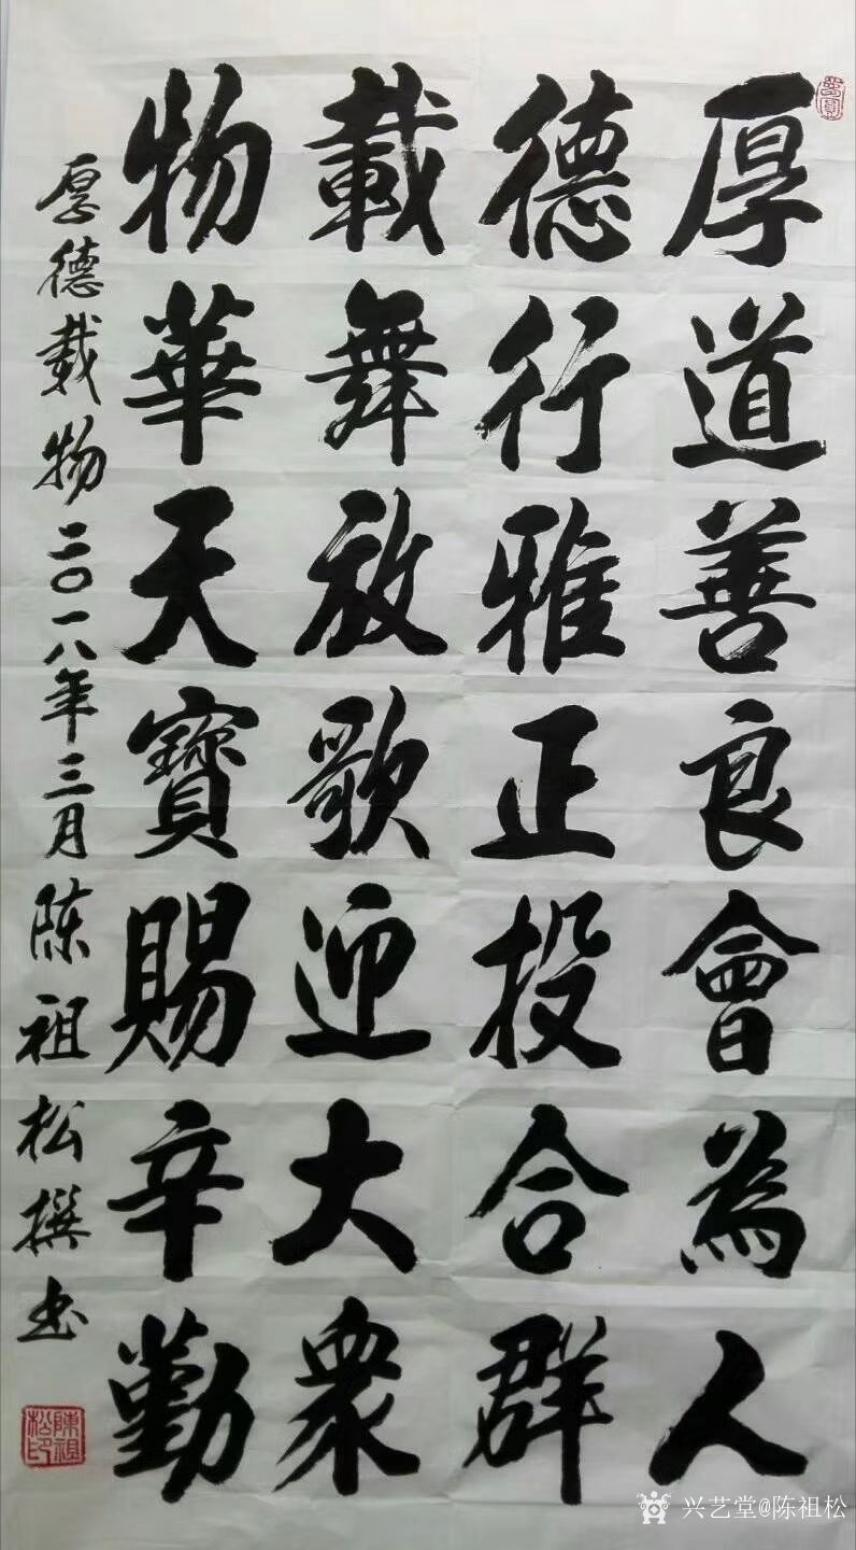 厚道善良會為人
德行雅正投合群
載舞放歌迎大眾
物華天寶賜辛勤
厚德载物二〇一八年三月陈祖松撰书
陳祖松印
兴艺堂@陈祖松